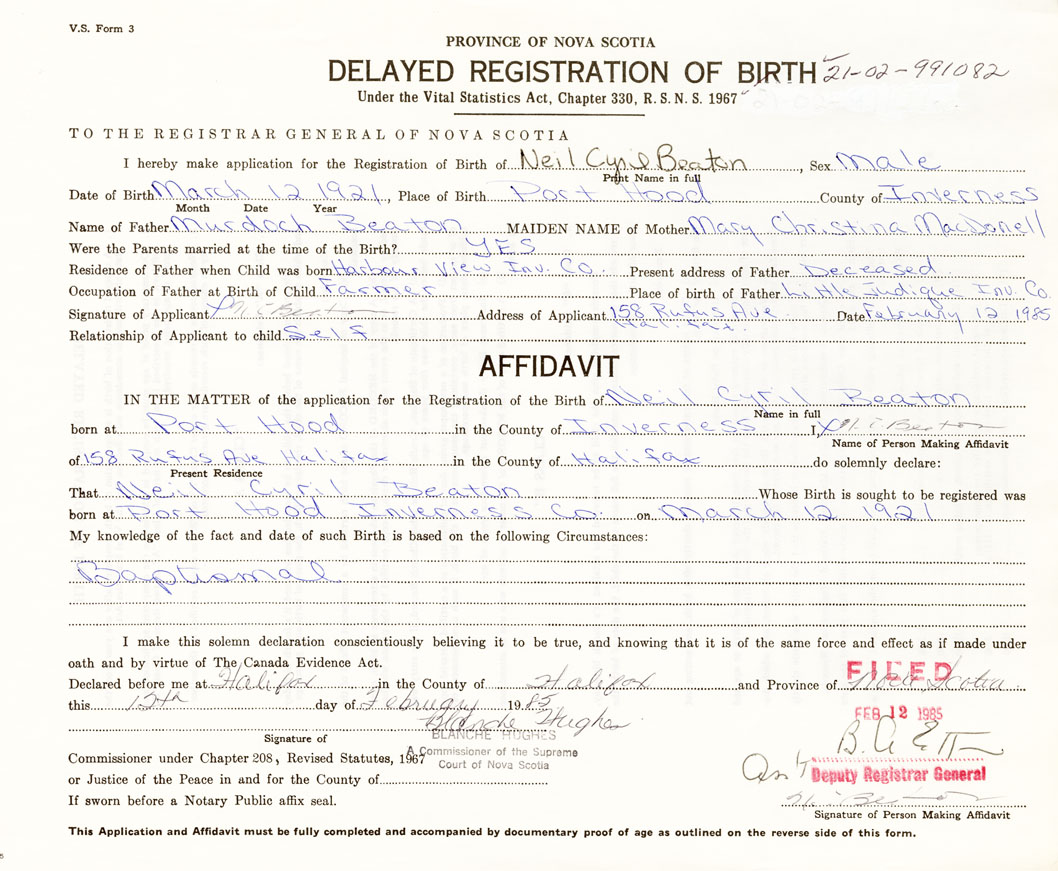 V.S. Form 3
PROVINCE OF NOVA SCOTIA
DELAYED REGISTRATION OF BIRTH 21-02-991082
Under the Vital Statistics Act, Chapter 330, R.S.N.S. 1967
TO THE REGISTRAR GENERAL OF NOVA SCOTIA
I hereby make application for the Registration of Birth of Neil Cyril Beaton, Sex Male
Print Name in full
Date of Birth March 12 1921, Place of Birth Port Hood County of Inverness
Month Date Year
Name of Father Murdoch Beaton MAIDEN NAME of Mother Mary Christina MacDonell
Were the Parents married at the time of the Birth? YES
Residence of Father when Child was born Harbour View Inv. Co. Present address of Father Deceased
Occupation of Father at Birth of Child Farmer Place of birth of Father Little Judique Inv. Co.
Signature of Applicant X N. C. Beaton Address of Applicant 158 Rufus Ave Date February 12 1985
Halifax.
Relationship of Applicant to child Self
AFFIDAVIT
IN THE MATTER of the application for the Registration of the Birth of Neil Cyril Beaton
Name in full
born at Port Hood in the County of Inverness I X N. C. Beaton
Name of Person Making Affidavit
of 158 Rufus Ave Halifax in the County of Halifax do solemnly declare:
Present Residence
That Neil Cyril Beaton Whose Birth is sought to be registered was
born at Port Hood Inverness Co. on March 12 1921
My knowledge of the fact and date of such Birth is based on the following Circumstances:
Baptismal
I make this solemn declaration conscientiously believing it to be true, and knowing that it is of the same force and effect as if made under
oath and by virtue of The Canada Evidence Act.
FILED
Declared before me at Halifax in the County of Halifax and Province of Nova Scotia
this 12th day of February 1985
FEB 12 1985
Blanche Hughes
BLANCHE HUGHES
Signature of
A Commissioner of the Supreme
Court of Nova Scotia
Commissioner under Chapter 208, Revised Statutes, 1967
Deputy Registrar General
or Justice of the Peace in and for the County of
N. C. Beaton
If sworn before a Notary Public affix seal.
Signature of Person Making Affidavit
This Application and Affidavit must be fully completed and accompanied by documentary proof of age as outlined on the reverse side of this form.